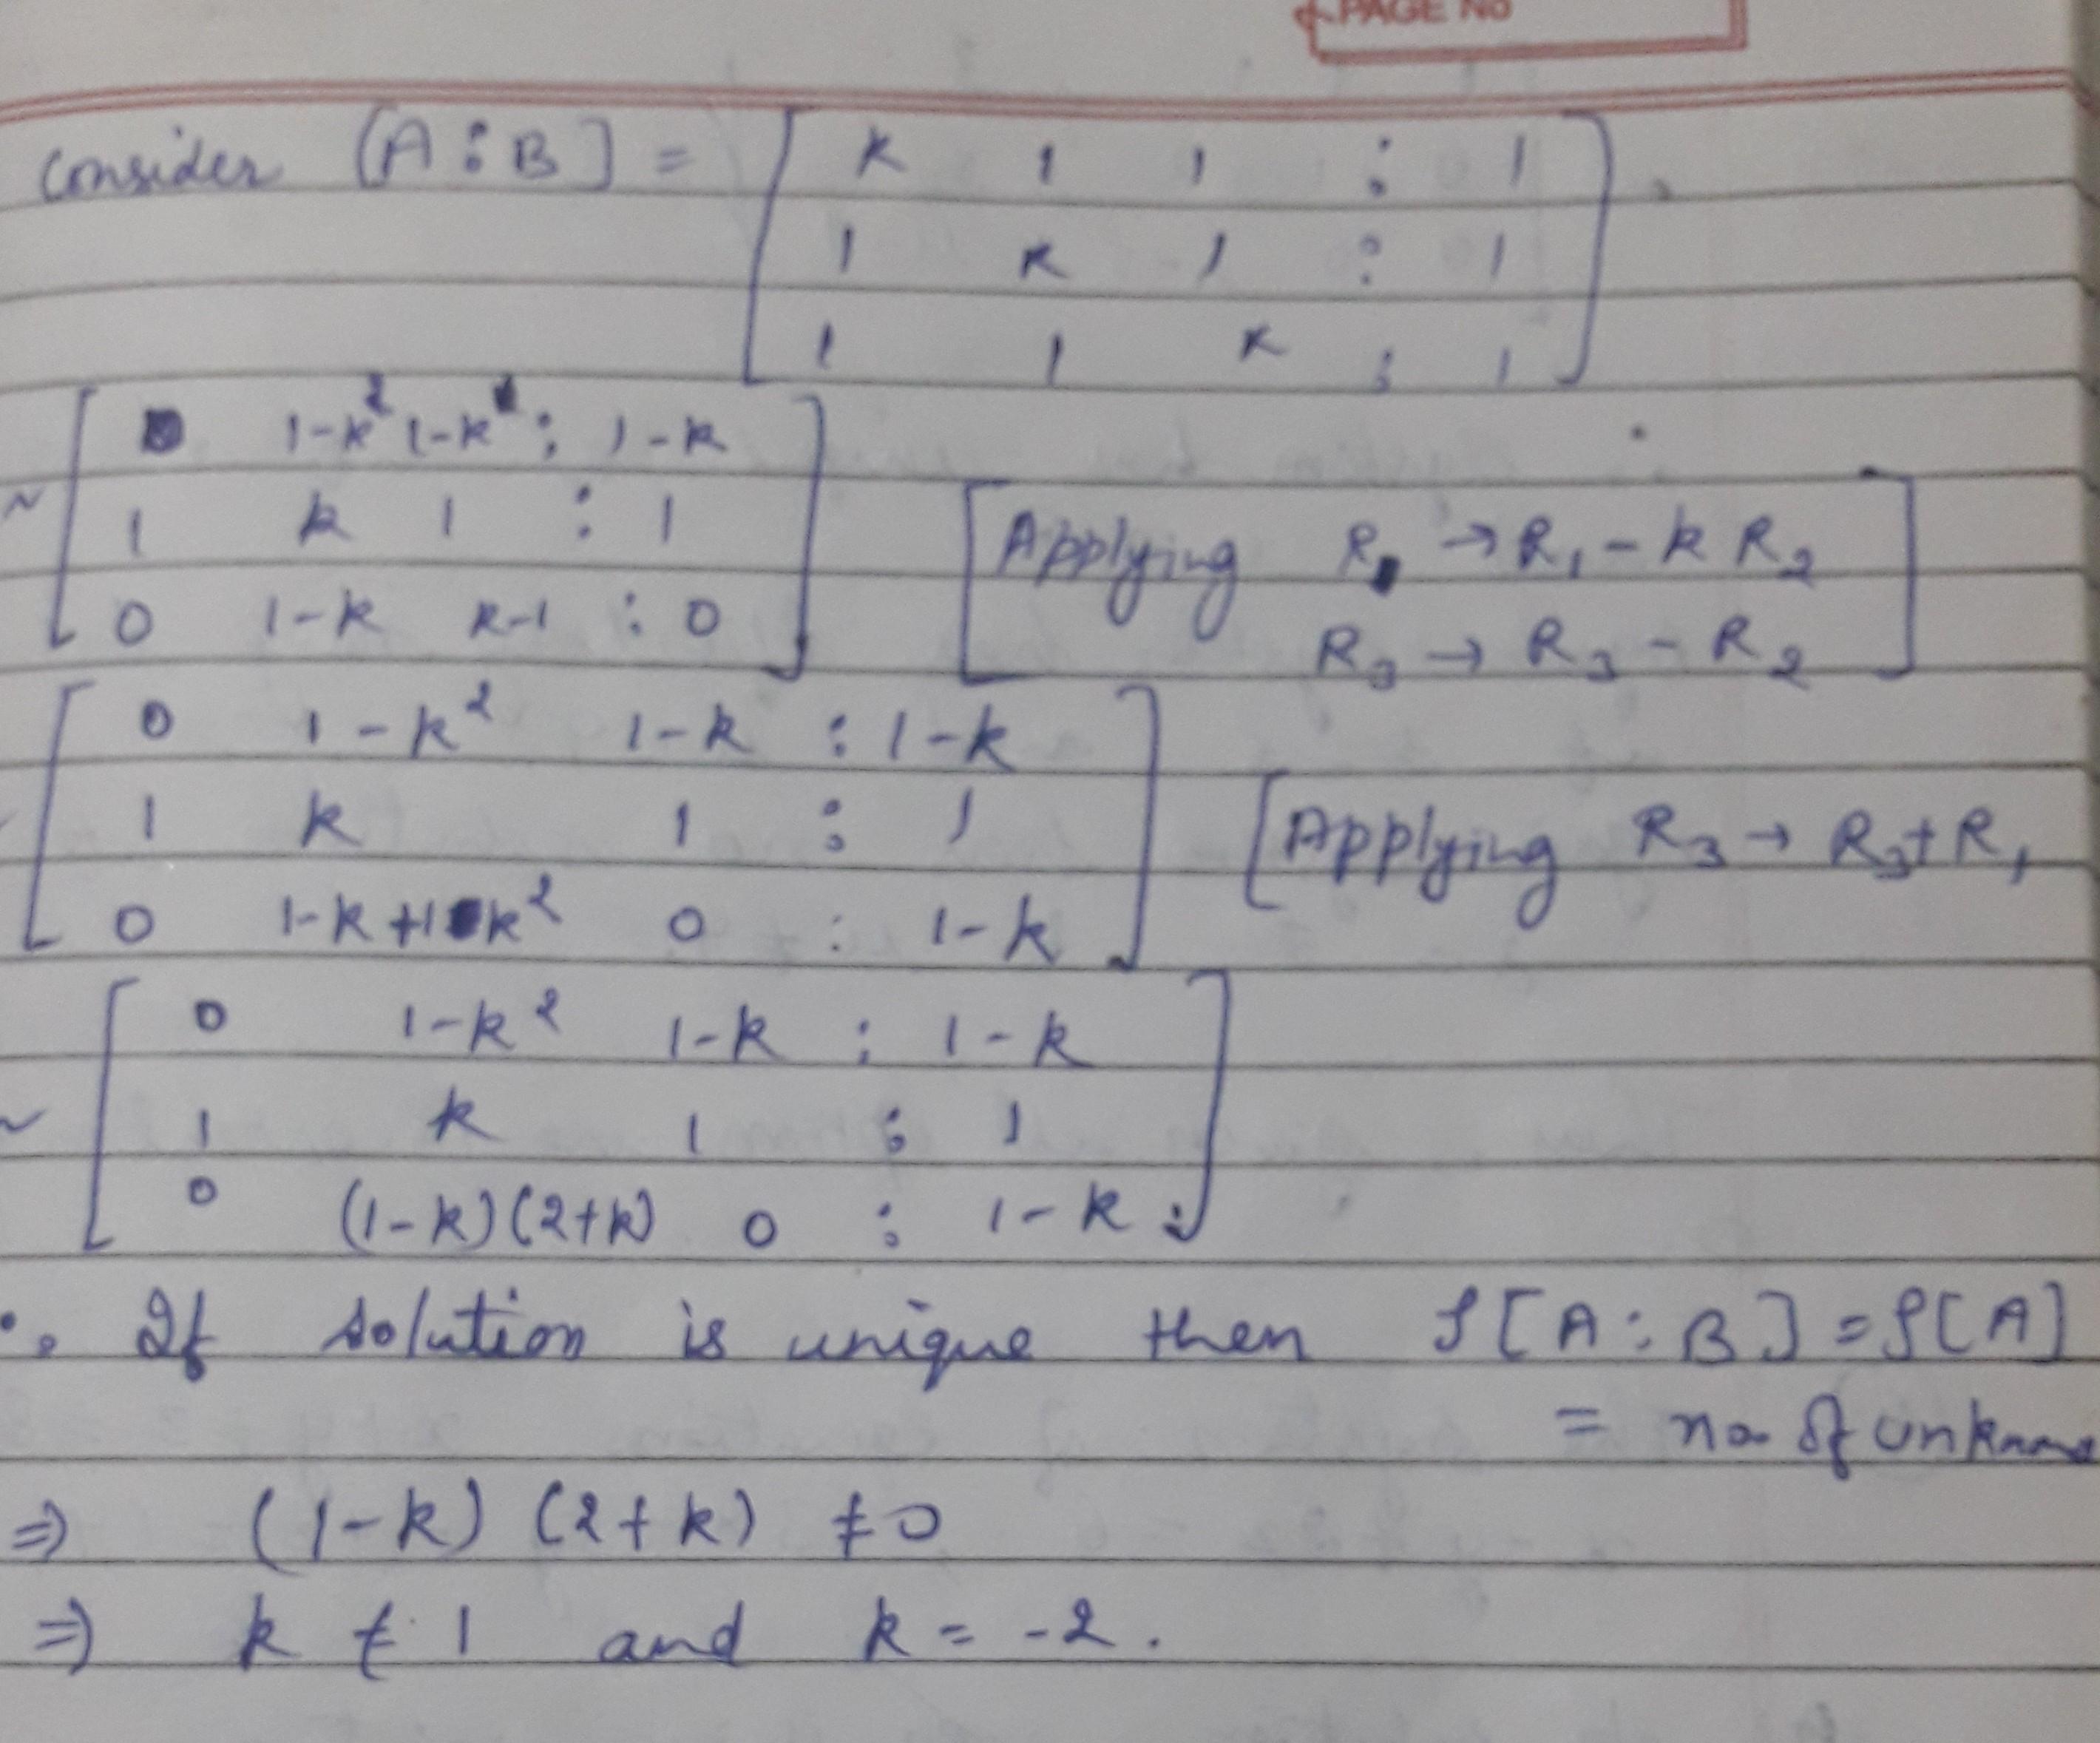 PAGE No
Consider [A : B] = [ k 1 1 : 1
1 k 1 : 1
1 1 k : 1 ]
~ [ 0 1-k² 1-k : 1-k
1 k 1 : 1
0 1-k k-1 : 0 ] [Applying R₁ → R₁ - k R₂
R₃ → R₃ - R₂ ]
[ 0 1-k² 1-k : 1-k
1 k 1 : 1
0 1-k+1-k² 0 : 1-k ] [Applying R₃ → R₃+R₁
~ [ 0 1-k² 1-k : 1-k
1 k 1 : 1
0 (1-k)(2+k) 0 : 1-k ]
If solution is unique then ρ[A : B] = ρ[A]
= no of
⇒ (1-k) (2+k) ≠ 0
⇒ k ≠ 1 and k = -2.